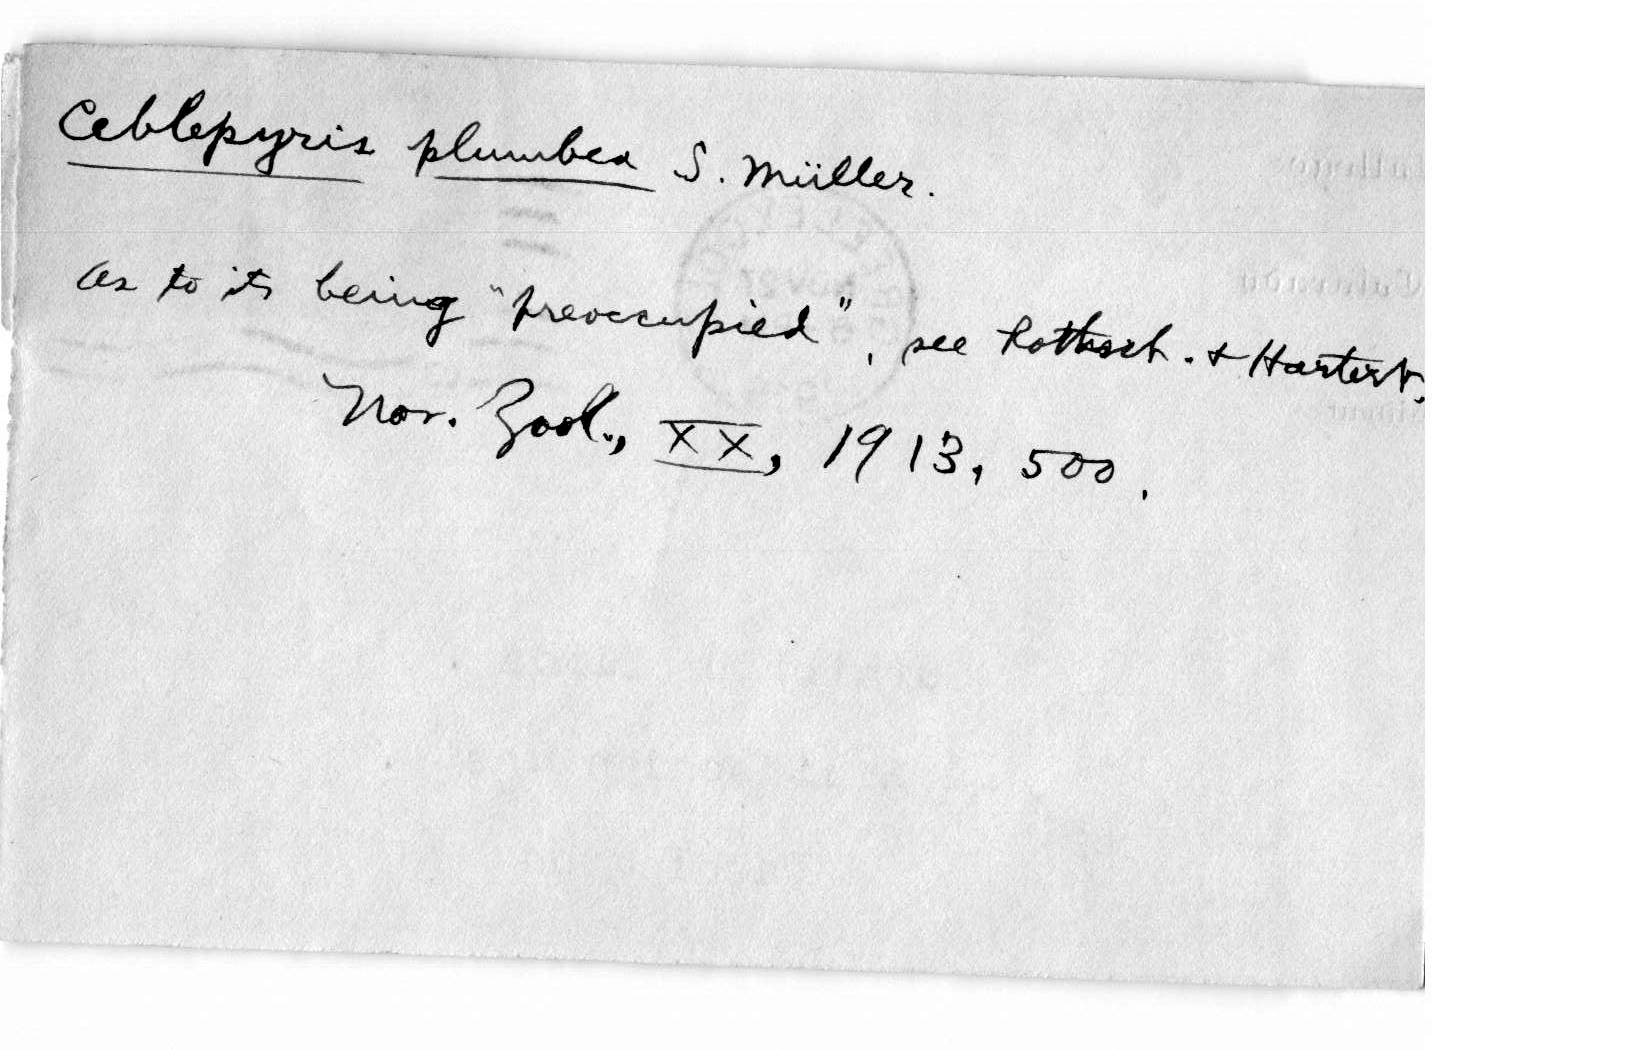 Ceblepyris plumbea S. Müller.
as to its being "preoccupied", see Rothsch. & Hartert,
Nov. Zool., XX, 1913, 500.